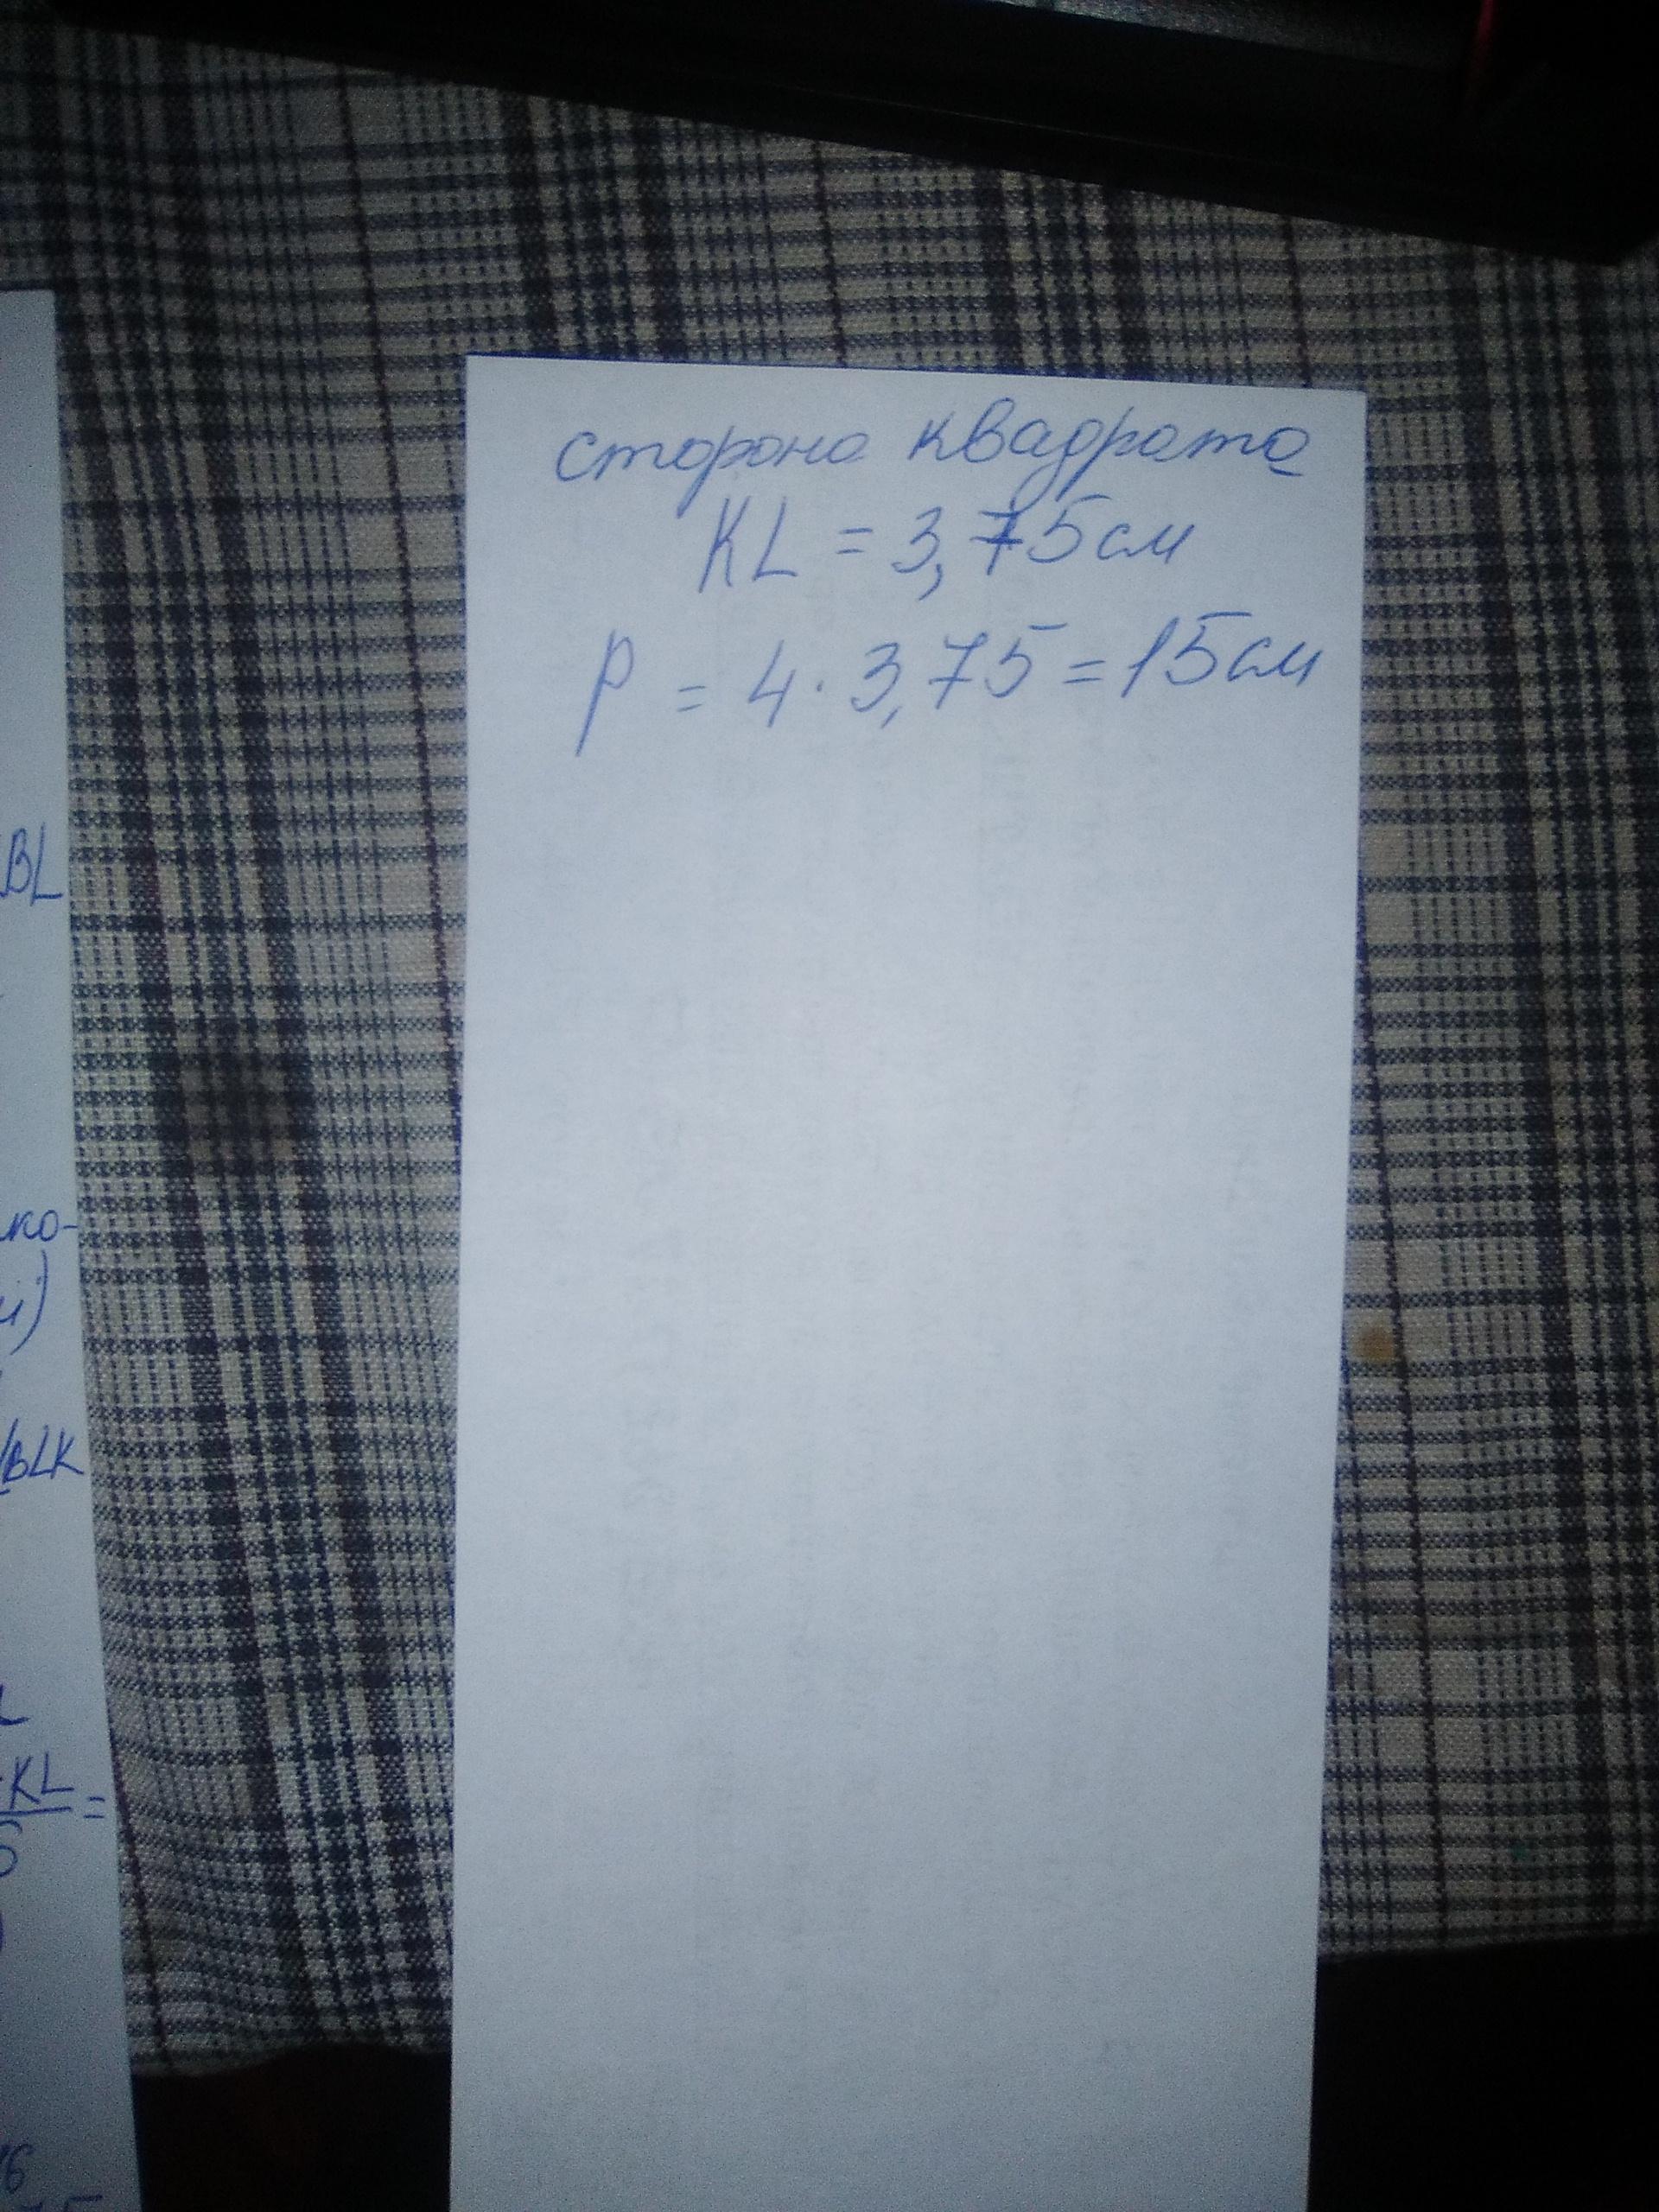 BL
ко-
й)
BLK
L
KL =
6
сторона квадрата
KL = 3,75 см
P = 4 · 3,75 = 15 см